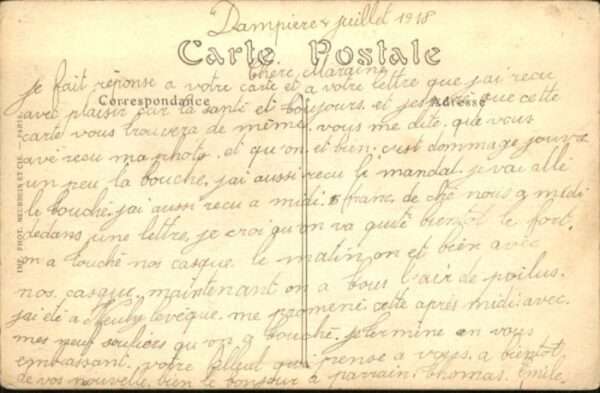 Dampierre juillet 1918
Carte Postale
Chère Marraine
je fait réponse a votre carte et a votre lettre que j'ai recu
Correspondance
Adresse
avec plaisir car la santé et toujours et j'espère que cette
carte vous trouvera de même. vous me dite que vous
avé resu ma photo. et qu'on et bien. c'est dommage jouvre
un peu la bouche. j'ai aussi recu le mandat. je vai allé
le touché. j'ai aussi recu a midi 5 franc de ché nous a midi
dedans une lettre, je croi qu'on va quité bientôt le fort.
on a touché nos casque. le matin, on et bien avec
nos casque. maintenant on a tous l'air de poilus.
j'ai été a levêque. me promené cette après midi avec
mes neuf souliers qu'on a touché. je termine en vous
embrassant. votre filleul qui pense a vous. a bientôt
de vos nouvelle. bien le bonjour a parrain. Thomas. Emile.
IMP. PHOT. NEURDEIN ET CIE. — PARIS